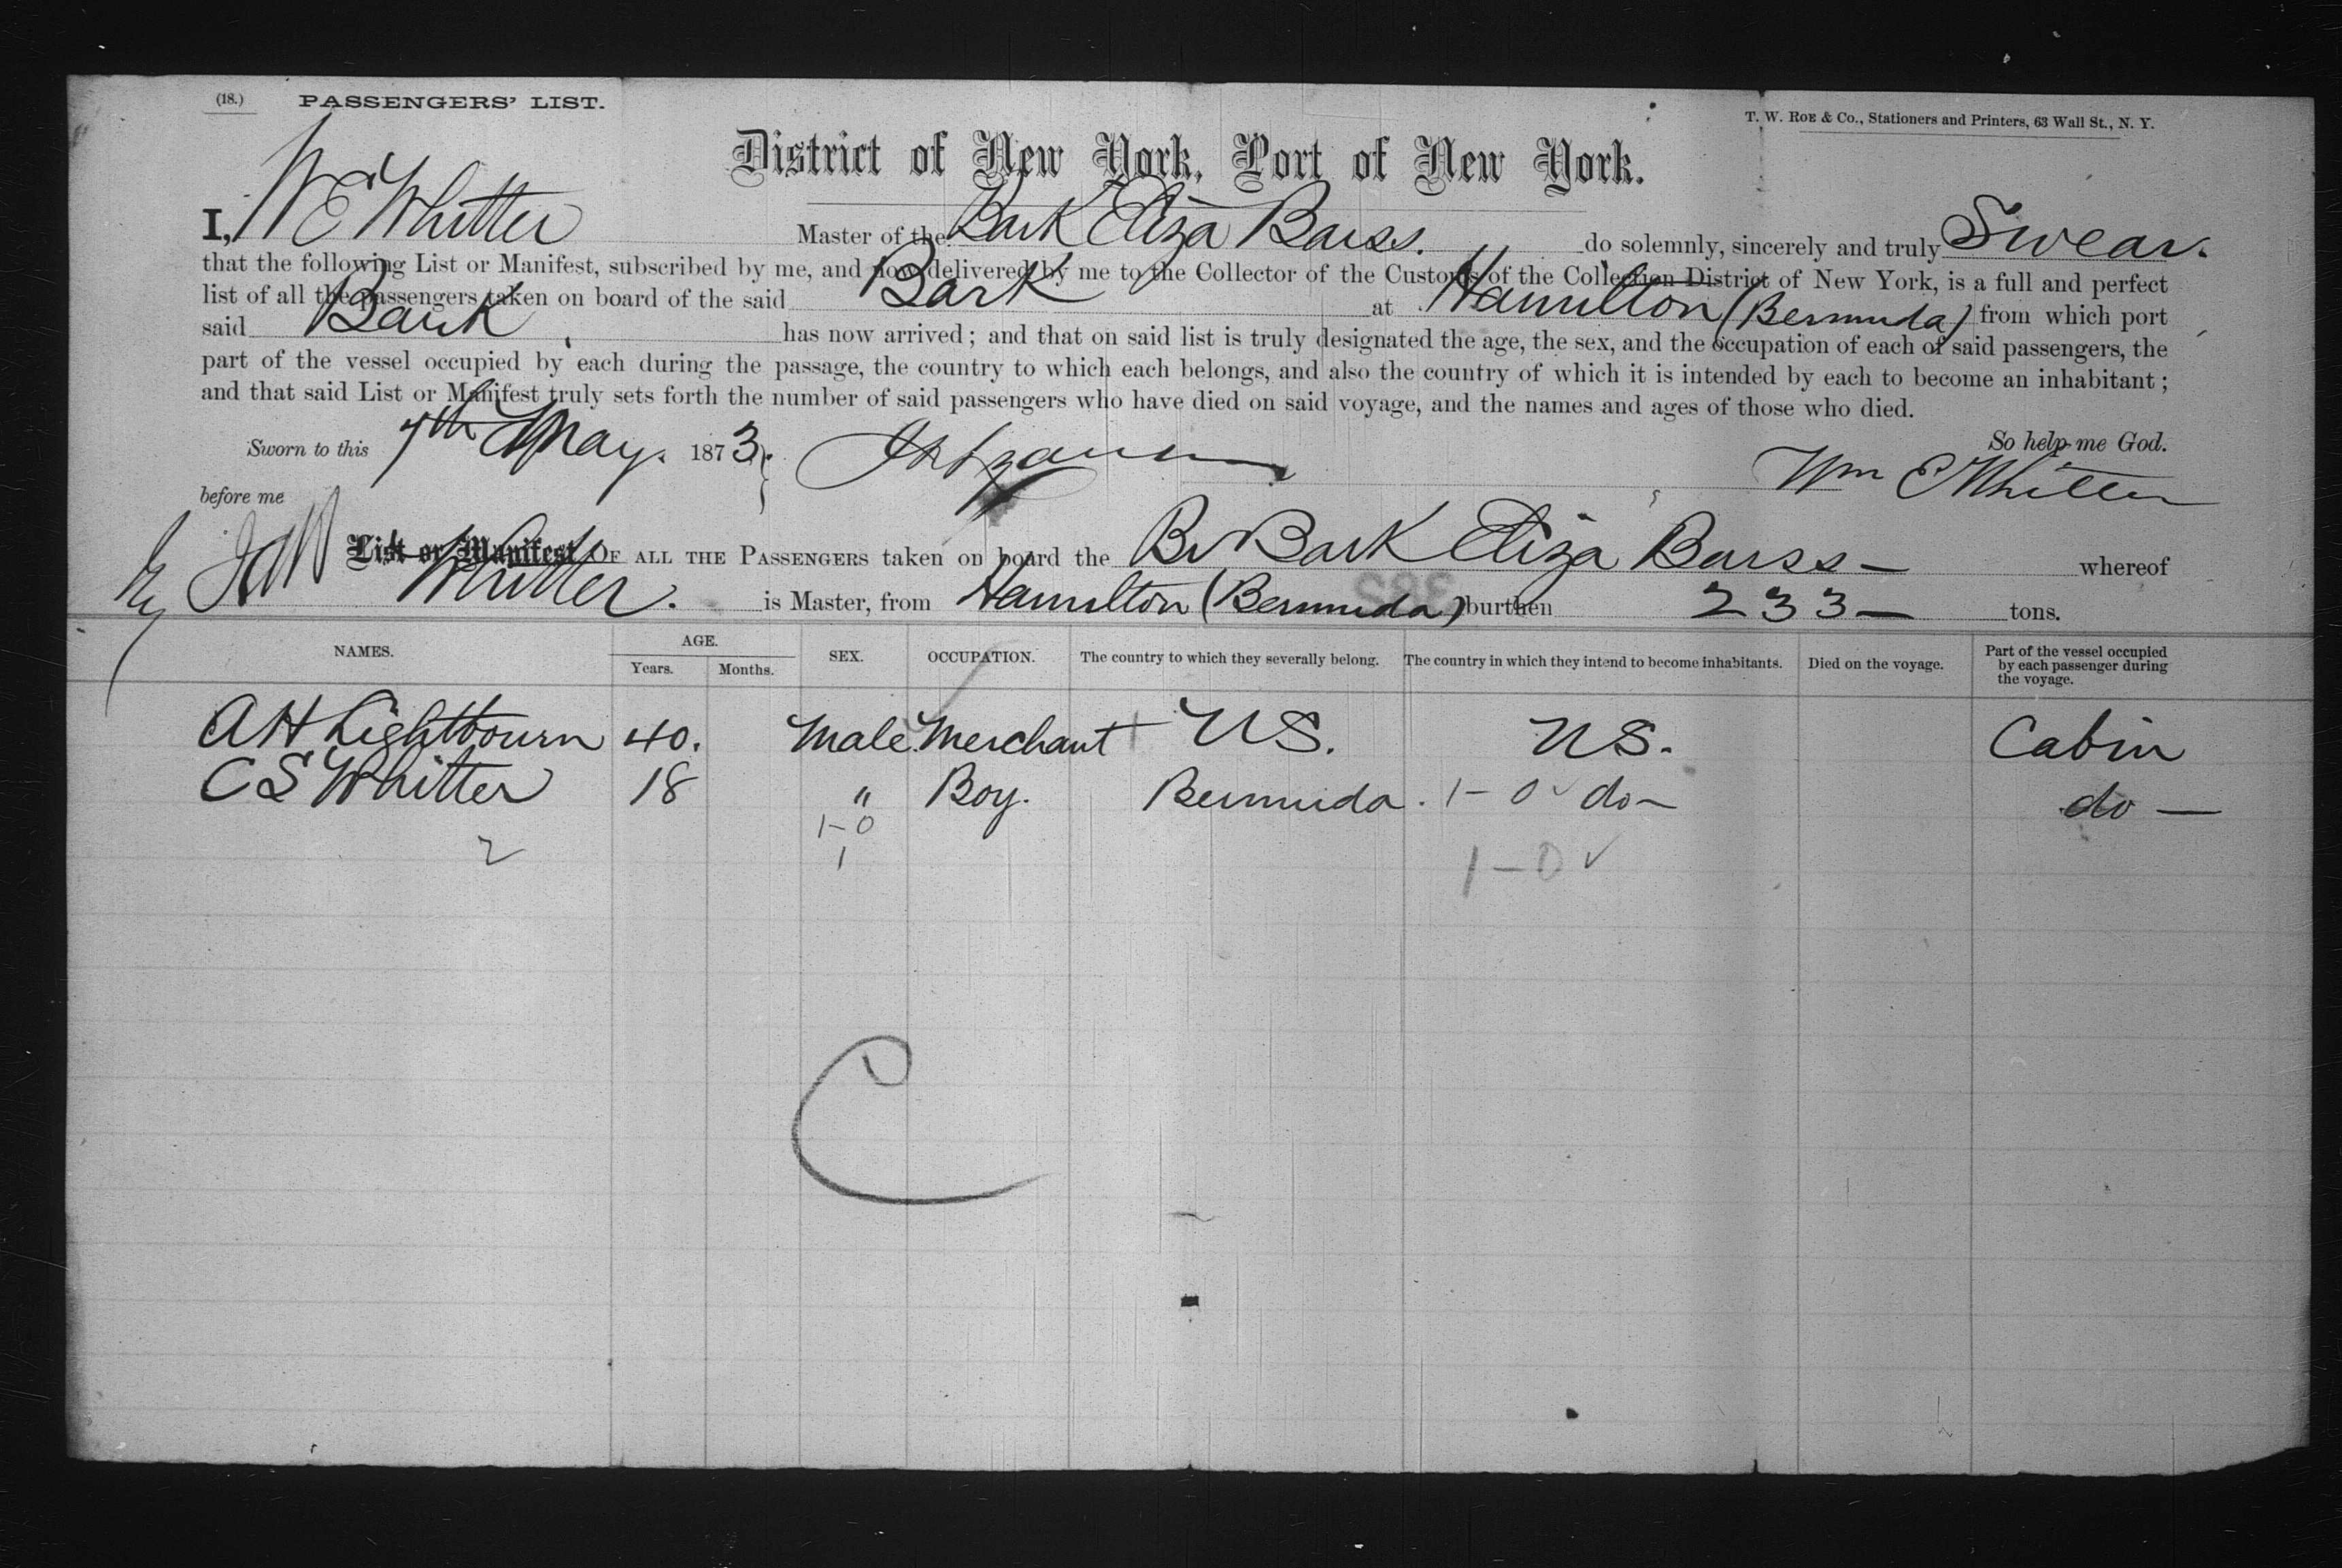 (18.) PASSENGERS' LIST.
T. W. ROE & Co., Stationers and Printers, 63 Wall St., N. Y.
District of New York, Port of New York.
I, W E Whitter Master of the Bark Eliza Barss. do solemnly, sincerely and truly Swear.
that the following List or Manifest, subscribed by me, and now delivered by me to the Collector of the Customs of the Collection District of New York, is a full and perfect
list of all the passengers taken on board of the said Bark at Hamilton (Bermuda) from which port
said Bark has now arrived; and that on said list is truly designated the age, the sex, and the occupation of each of said passengers, the
part of the vessel occupied by each during the passage, the country to which each belongs, and also the country of which it is intended by each to become an inhabitant;
and that said List or Manifest truly sets forth the number of said passengers who have died on said voyage, and the names and ages of those who died.
So help me God.
Sworn to this 7th May. 1873.
Wm E Whitter
before me
List or Manifest OF ALL THE PASSENGERS taken on board the Br Bark Eliza Barss — whereof
Whitter. is Master, from Hamilton (Bermuda) burthen 233 — tons.
NAMES. AGE. Years. Months. SEX. OCCUPATION. The country to which they severally belong. The country in which they intend to become inhabitants. Died on the voyage. Part of the vessel occupied by each passenger during the voyage.
A H Lightbourn 40. Male Merchant US. US. Cabin
C S Whitter 18 " Boy. Bermuda. 1-0 ✓ do— do —
1-0
2 1 1-0 ✓
C